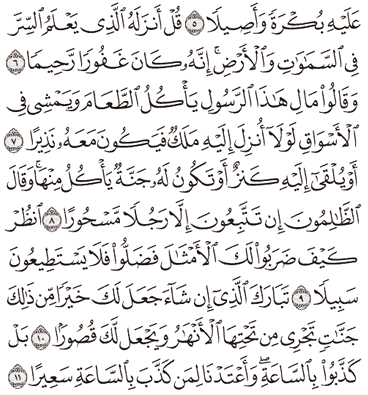 عَلَيْهِ بُكْرَةً وَأَصِيلًا ۝٥ قُلْ أَنزَلَهُ ٱلَّذِى يَعْلَمُ ٱلسِّرَّ
فِى ٱلسَّمَٰوَٰتِ وَٱلْأَرْضِ ۚ إِنَّهُۥ كَانَ غَفُورًا رَّحِيمًا ۝٦
وَقَالُوا۟ مَالِ هَٰذَا ٱلرَّسُولِ يَأْكُلُ ٱلطَّعَامَ وَيَمْشِى فِى
ٱلْأَسْوَاقِ ۙ لَوْلَآ أُنزِلَ إِلَيْهِ مَلَكٌ فَيَكُونَ مَعَهُۥ نَذِيرًا ۝٧
أَوْ يُلْقَىٰٓ إِلَيْهِ كَنزٌ أَوْ تَكُونُ لَهُۥ جَنَّةٌ يَأْكُلُ مِنْهَا ۚ وَقَالَ
ٱلظَّٰلِمُونَ إِن تَتَّبِعُونَ إِلَّا رَجُلًا مَّسْحُورًا ۝٨ ٱنظُرْ
كَيْفَ ضَرَبُوا۟ لَكَ ٱلْأَمْثَٰلَ فَضَلُّوا۟ فَلَا يَسْتَطِيعُونَ
سَبِيلًا ۝٩ تَبَارَكَ ٱلَّذِىٓ إِن شَآءَ جَعَلَ لَكَ خَيْرًا مِّن ذَٰلِكَ
جَنَّٰتٍ تَجْرِى مِن تَحْتِهَا ٱلْأَنْهَٰرُ وَيَجْعَل لَّكَ قُصُورًۢا ۝١٠ بَلْ
كَذَّبُوا۟ بِٱلسَّاعَةِ ۖ وَأَعْتَدْنَا لِمَن كَذَّبَ بِٱلسَّاعَةِ سَعِيرًا ۝١١